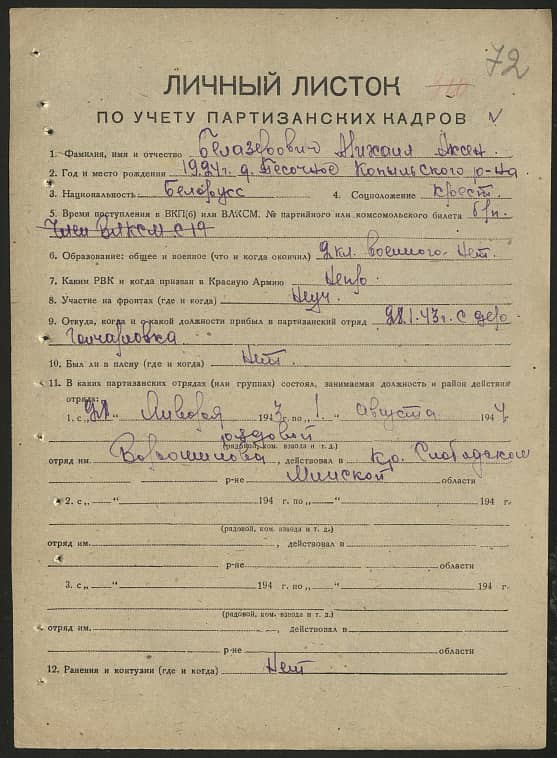 72
ЛИЧНЫЙ ЛИСТОК
ПО УЧЕТУ ПАРТИЗАНСКИХ КАДРОВ
1. Фамилия, имя и отчество Белазерович Михаил Аксен.
2. Год и место рождения 1924г. д. Песочное Копыльского р-на
3. Национальность Белорусс 4. Соцположение крест.
5. Время поступления в ВКП(б) или ВЛКСМ. № партийного или комсомольского билета б/п.
Член ВЛКСМ с 19
6. Образование: общее и военное (что и когда окончил) 2 кл. военного-Нет.
7. Каким РВК и когда призван в Красную Армию
8. Участие на фронтах (где и когда) Неуч.
9. Откуда, когда и с какой должности прибыл в партизанский отряд 1.43г. с дер.
Гончаровка
10. Был ли в плену (где и когда) Нет.
11. В каких партизанских отрядах (или группах) состоял, занимаемая должность и район действия
отряда:
1. с „ “ Января 1943 г. по „1 “ августа 1944
рядовой
(рядовой, ком. взвода и т. д.)
отряд им. Ворошилова, действовал в Кр. Слободском
р-не Минской области
2. с „ “ 194 г. по „ “ 194 г.
(рядовой, ком. взвода и т. д.)
отряд им. , действовал в
р-не области
3. с „ “ 194 г. по „ “ 194 г.
(рядовой, ком. взвода и т. д.)
отряд им. , действовал в
р-не области
12. Ранения и контузии (где и когда) Нет